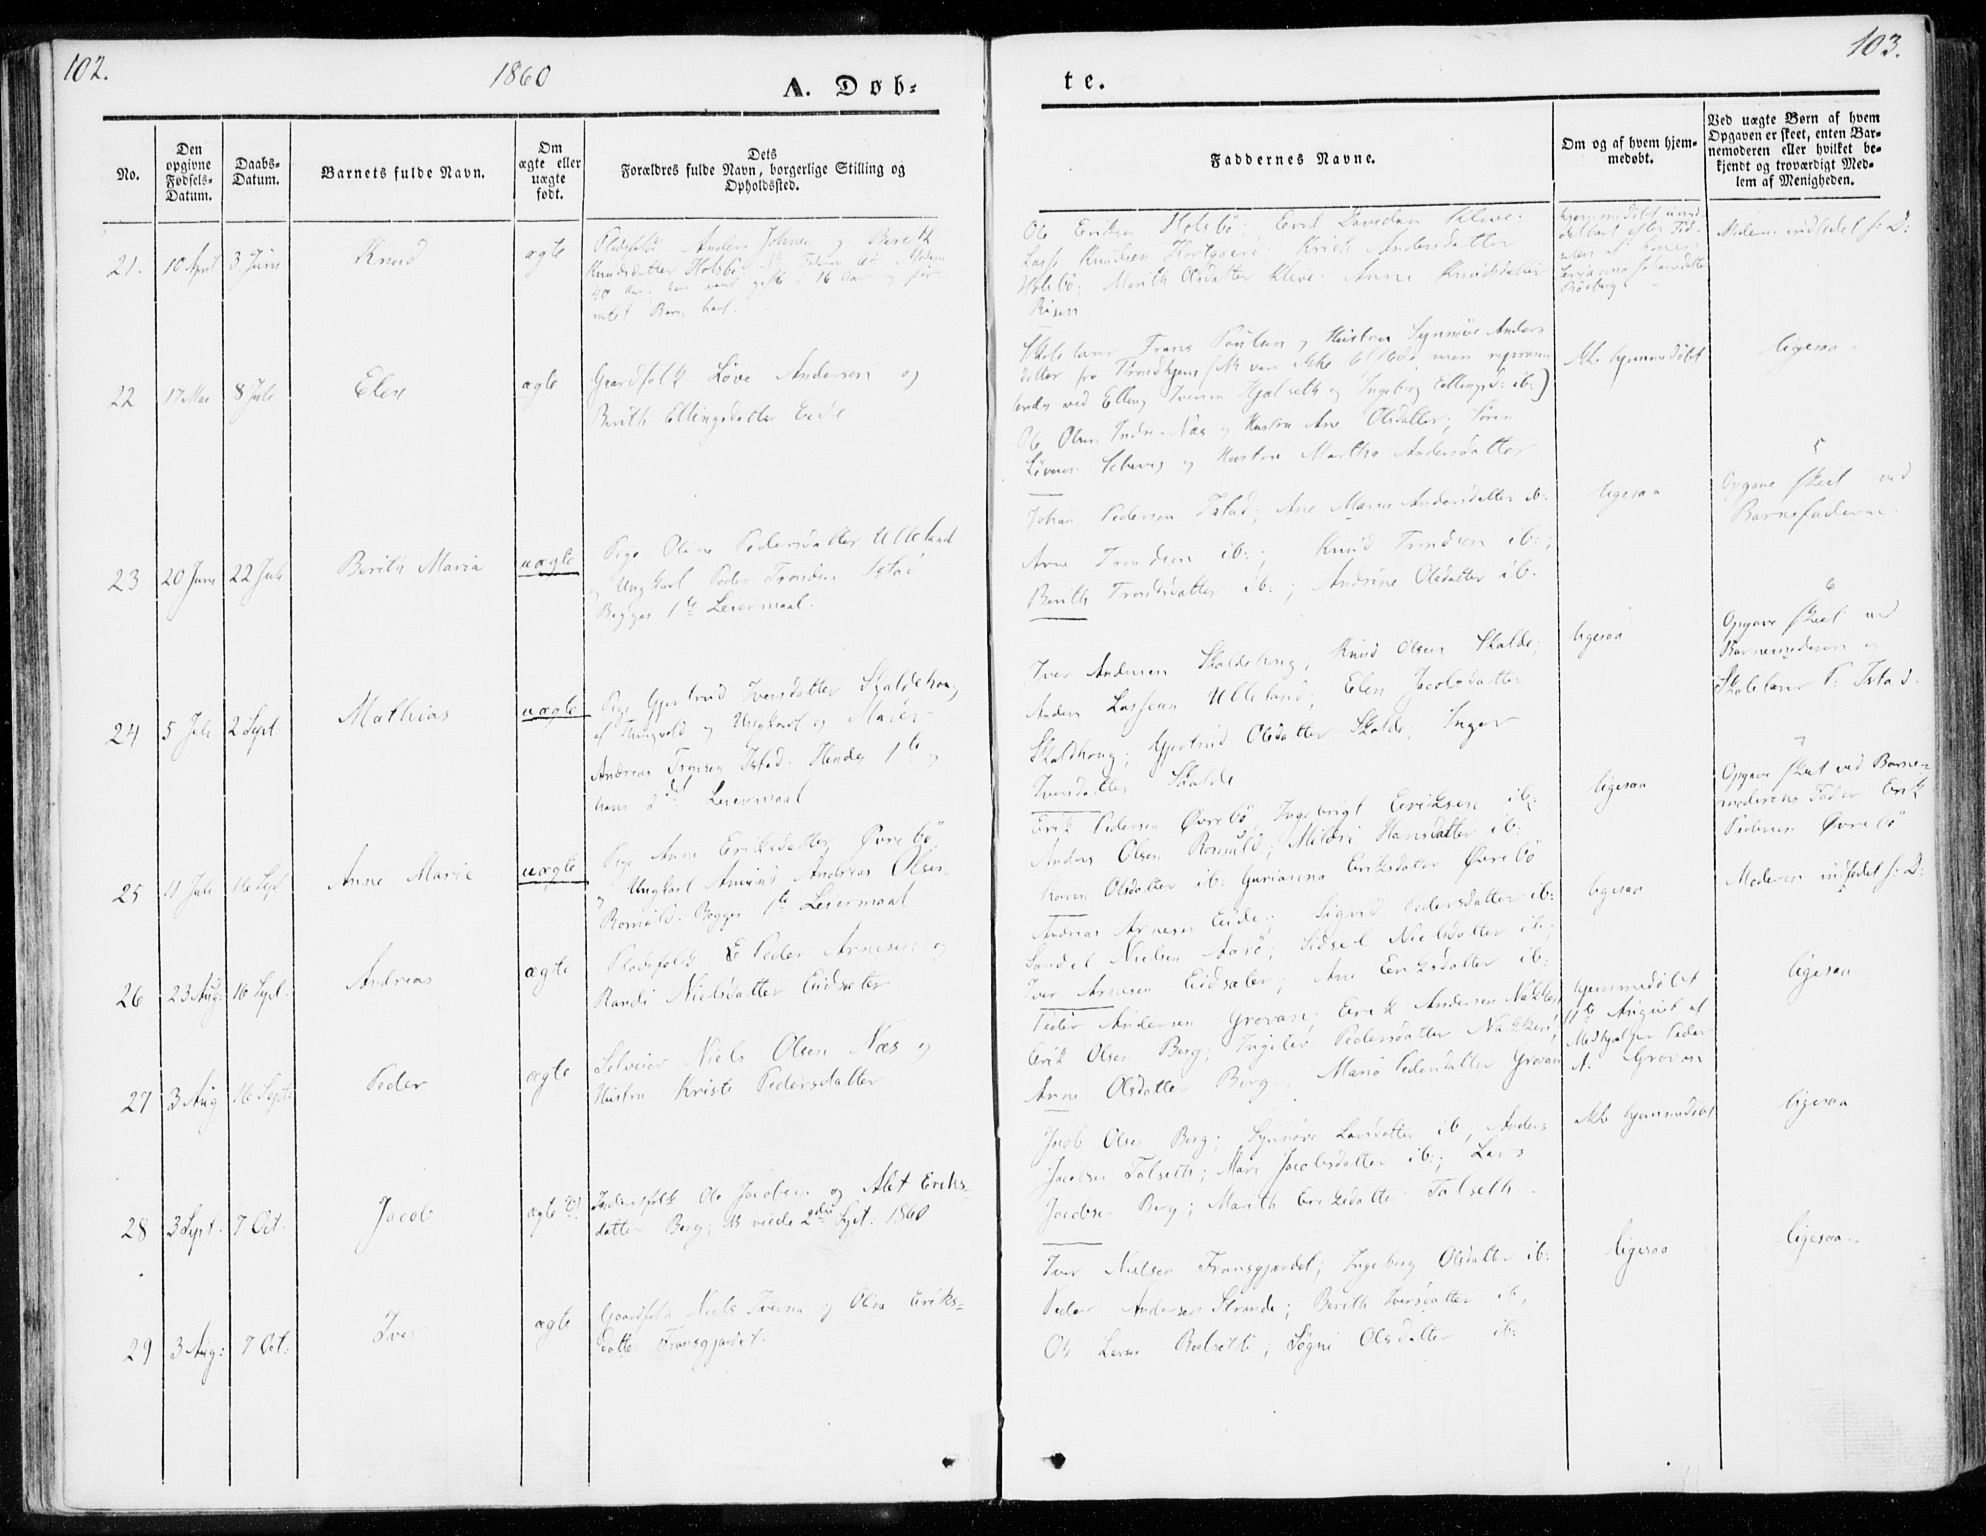 102.
1860
A. Døb-
te.
103.
No.
Den opgivne Fødsels-Datum.
Daabs-Datum.
Barnets fulde Navn.
Om ægte eller uægte født.
Dets
Forældres fulde Navn, borgerlige Stilling og
Opholdssted.
Faddernes Navne.
Om og af hvem hjem-
medøbt.
Ved uægte Børn af hvem
Opgaven er skeet, enten Bar-
nemoderen eller hvilket be-
kjendt og troværdigt Med-
lem af Menigheden.
21. 10 April 3 Juni Knud ægte
Anders Johnsen og Berith
Knudsdatter Holsbø
40 Aar
Ole Eriksen Holsbø; Erik Klive
Lasse Knudsen; Andersdatter
Holsbø; Marith Olsdatter Klive; Anne Knudsdatter
hjemmedøbt
Moderen indledet s: D:
22 17 Mai 8 Juli Elen ægte
Gaardfolk Løve Andersen og
Berith Ellingsdatter Eide
Skolelærer Frans Poulsen og Hustru Synnøve Anders
datter fra Trondhjem
ved Elling Iversen Hjælseth og Ingeborg Ellingsd: ib:)
Ole Olsen Indre-Næs og Hustru Ane Olsdatter; Søren
og Hustru Martha Andersdatter
ikke hjemmedøbt
ligesaa
23 20 Juni 22 Juli Berith Maria uægte
Pige Oline Pedersdatter Ulleland
og Ungkarl Peder Trondsen Istad
Begges 1te Leiermaal.
Johan Pedersen Istad; Ane Maria Andersdatter ib:
Arne Trondsen ib:; Knud Trondsen ib:;
Berith Trondsdatter ib:; Andrine Olsdatter ib:
ligesaa
5
Opgave skeet ved
Barnefaderen.
24 5 Juli 2 Sept. Mathias uægte
Pige Gjertrud Iversdatter Skaldehoug
af Tingvold og Ungkarl og Maler
Andreas Tronsen Istad. Hendes 1te og
hans 2det Leiermaal
Iver Andersen Skaldehoug; Knud Olsen Skalde;
Anders Lassesen Ulleland; Elen Jacobsdatter
Skaldhoug; Gjertrud Olsdatter Skalde; Inger
Iversdatter Skalde
ligesaa
6
Opgave skeet ved
Barnemoderen og
Skolelærer P: Istad.
25 11 Juli 16 Sept Anne Marie uægte
Pige Anne Eriksdatter Øvrebø
og Ungkarl Amund Andreas Olsen
Romuld. Begges 1te Leiermaal
Erik Pedersen Øvrebø; Ingebrigt Eriksen ib:
Anders Olsen Romuld; Hansdatter ib:
Karen Olsdatter ib: Gurianna Eriksdatter Øvrebø
ligesaa
7
Opgave skeet ved Barne-
moderens Fader Erik
Pedersen Øvrebø
26 23 Aug: 16 Sept: Andreas ægte
Pladsfolk Peder Arnesen og
Randi Nielsdatter Eidsæter
Andreas Arnesen Eide; Sigrid Pedersdatter ib:
Nielsen Aarø; Sidsel Nielsdatter ib:;
Iver Arnesen Eidsæter; Ane Eriksdatter ib:
ligesaa
Moderen indledet s: D:
27 3 Aug 16 Sept: Peder ægte
Selveier Niels Olsen Næs og
Hustru Kristi Pedersdatter
Peder Andersen Grovan; Erik Andersen Nakken
Erik Olsen Berg; Pedersdatter Nakken;
Anne Olsdatter Berg; Marie Pedersdatter Grovan
hjemmedøbt
11te August af
Medhjælper Peder
A. Grovan
ligesaa
28 3 Sept. 7 Oct. Jacob ægte
Ole Jacobsen og Alet Eriks-
datter Berg; viede 2den Sept: 1860
Jacob Olsen Berg; Synnøve Larsdatter ib:, Anders
Jacobsen Talseth; Mari Jacobsdatter ib:; Lars
Jacobsen Berg; Marith Eriksdatter Talseth.
ikke hjemmedøbt
ligesaa
29 3 Aug: 7 Oct: Iver ægte
Gaardfolk Niels Iversen og Oline Eriks-
datter Fransgjærdet.
Iver Nielsen Fransgjærdet; Ingeborg Olsdatter ib:
Peder Andersen Strande; Berith Iversdatter ib:,
Ole Larsen; Søgni Olsdatter ib:
ligesaa
ligesaa.